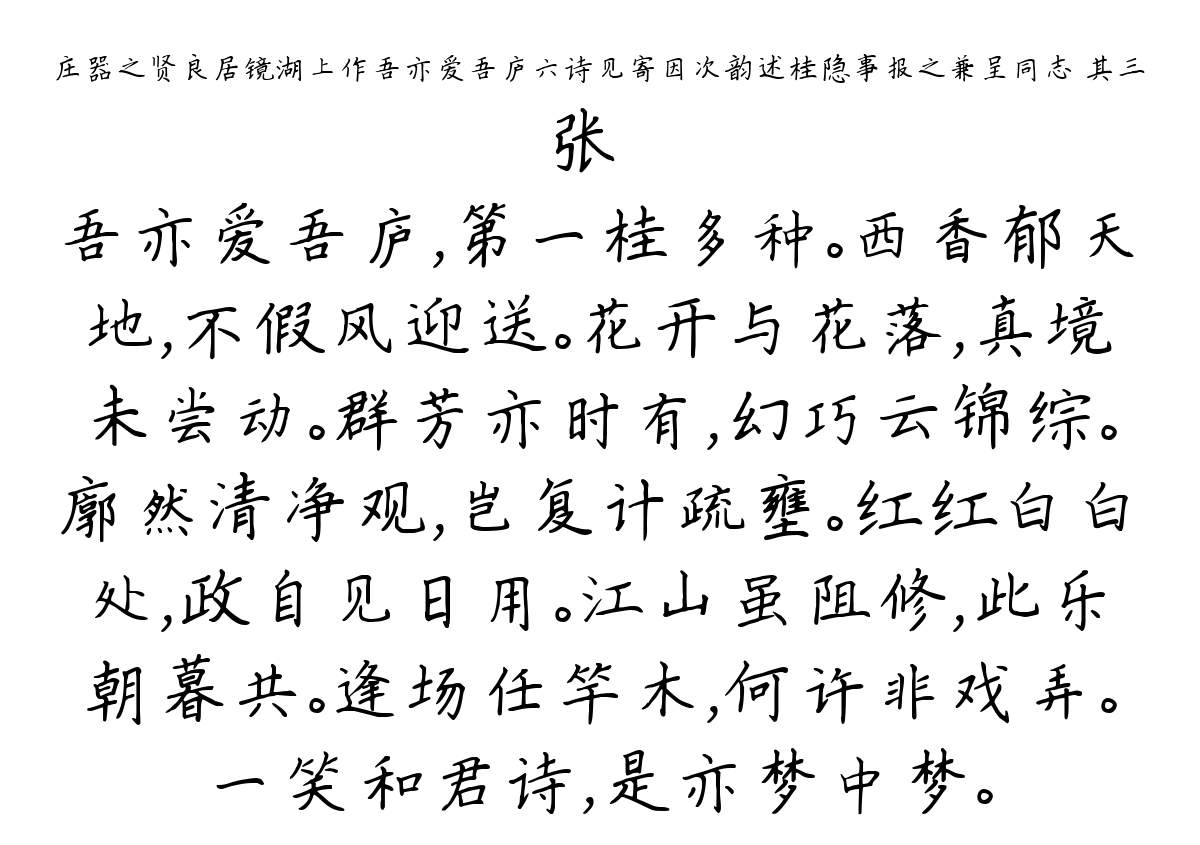 庄器之贤良居镜湖上作吾亦爱吾庐六诗见寄因次韵述桂隐事报之兼呈同志 其三
张
吾亦爱吾庐,第一桂多种。西香郁天
地,不假风迎送。花开与花落,真境
未尝动。群芳亦时有,幻巧云锦综。
廓然清净观,岂复计疏壅。红红白白
处,政自见日用。江山虽阻修,此乐
朝暮共。逢场任竿木,何许非戏弄。
一笑和君诗,是亦梦中梦。